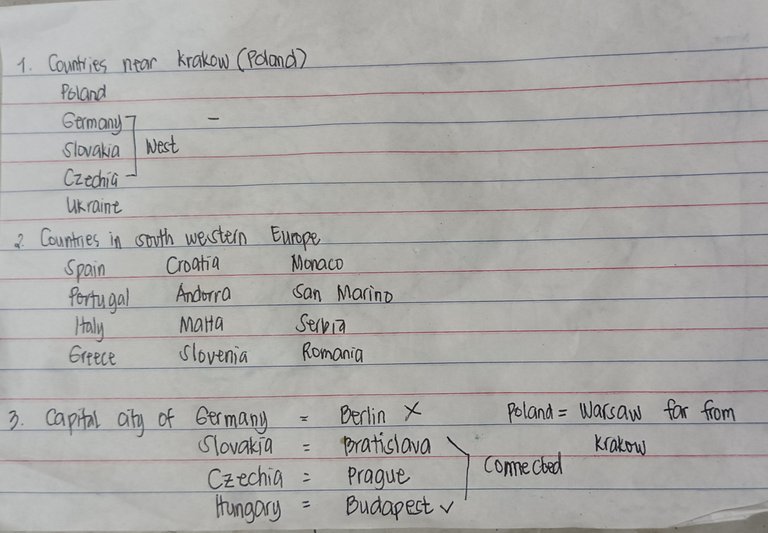 1. Countries near Krakow (Poland)
Poland
Germany -
Slovakia West
Czechia
Ukraine
2. Countries in south western Europe
Spain Croatia Monaco
Portugal Andorra San Marino
Italy Malta Serbia
Greece Slovenia Romania
3. Capital city of Germany = Berlin X Poland = Warsaw far from
Slovakia = Bratislava Krakow
Czechia = Prague Connected
Hungary = Budapest ✓